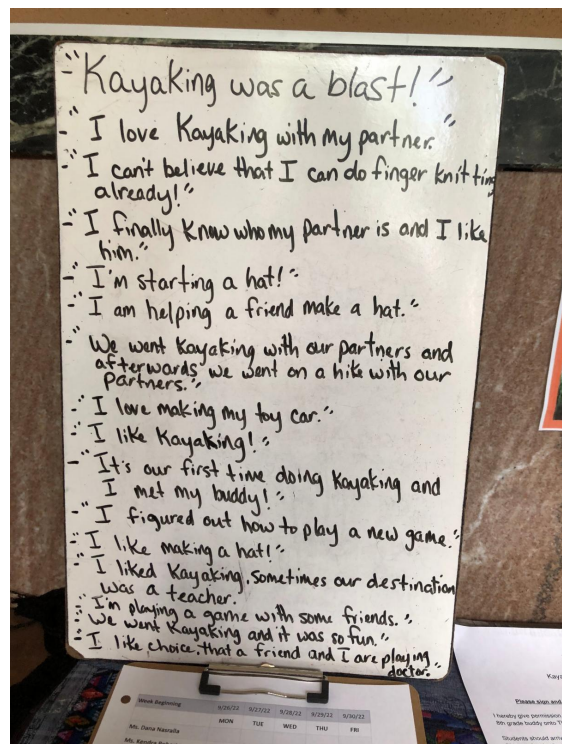 -"Kayaking was a blast!"
-"I love Kayaking with my partner."
-"I can't believe that I can do finger knitting
already!"
-"I finally know who my partner is and I like
him."
-"I'm starting a hat!"
-"I am helping a friend make a hat."
-"We went Kayaking with our partners and
afterwards we went on a hike with our
partners."
-"I love making my toy car."
-"I like Kayaking!"
-"It's our first time doing Kayaking and
I met my buddy!"
-"I figured out how to play a new game."
-"I like making a hat!"
-"I liked Kayaking, sometimes our destination
was a teacher.
-"I'm playing a game with some friends."
-"We went Kayaking and it was so fun."
-"I like choice, that a friend and I are playing
doctor."
Week Beginning 9/26/22 9/27/22 9/28/22 9/29/22 9/30/22
MON TUE WED THU FRI
Ms. Dana Nasralla
Ms. Kendra
Kaya
Please sign and
I hereby give permission
8th grade buddy onto
Students should